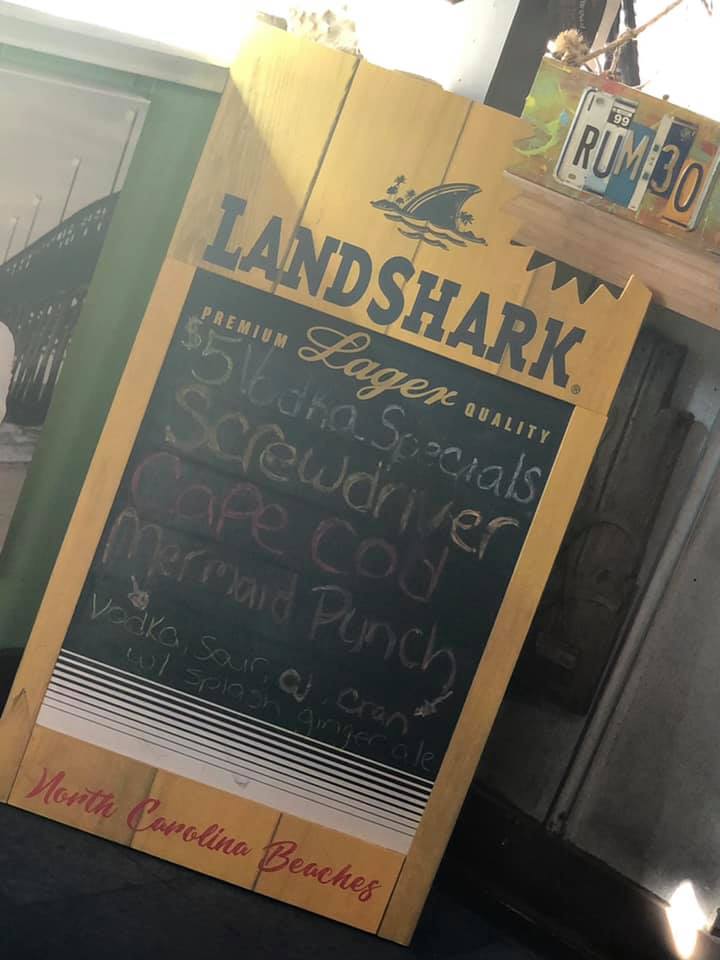 99
RUM:30
LANDSHARK®
PREMIUM Lager QUALITY
$5 Vodka Specials
Screwdriver
Cape Cod
Mermaid Punch
Vodka, Sour, OJ, Cran
w/ splash ginger ale
North Carolina Beaches